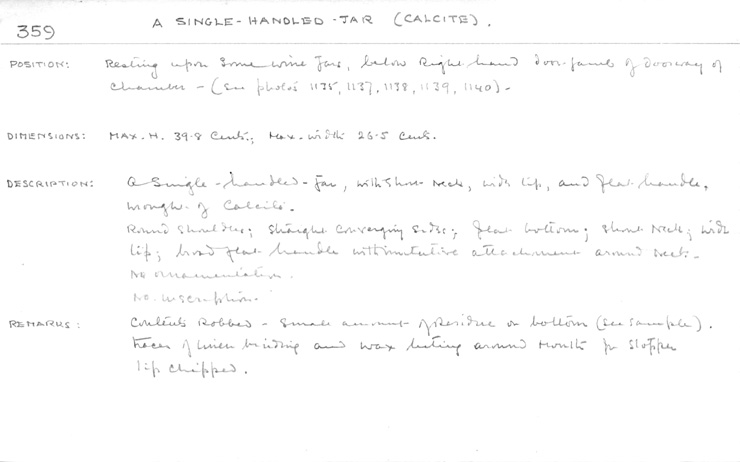 359
A SINGLE-HANDLED-JAR (CALCITE).
POSITION: Resting upon some wine jars, below Right-hand door-jamb of doorway of
chamber - (see photos 1135, 1137, 1138, 1139, 1140).-
DIMENSIONS: MAX. H. 39·8 Cents.; Max. width 26·5 Cents.
DESCRIPTION: A Single-handled-Jar, with short neck, wide lip, and flat handle,
wrought of Calcite.
Round shoulders; straight converging sides; flat bottom; short neck; wide
lip; broad flat handle with imitative attachment around neck.-
No ornamentation.
No inscription.
REMARKS: Contents Robbed - small amount of residue on bottom (see sample).
traces of linen binding and wax luting around mouth for stopper
lip chipped.